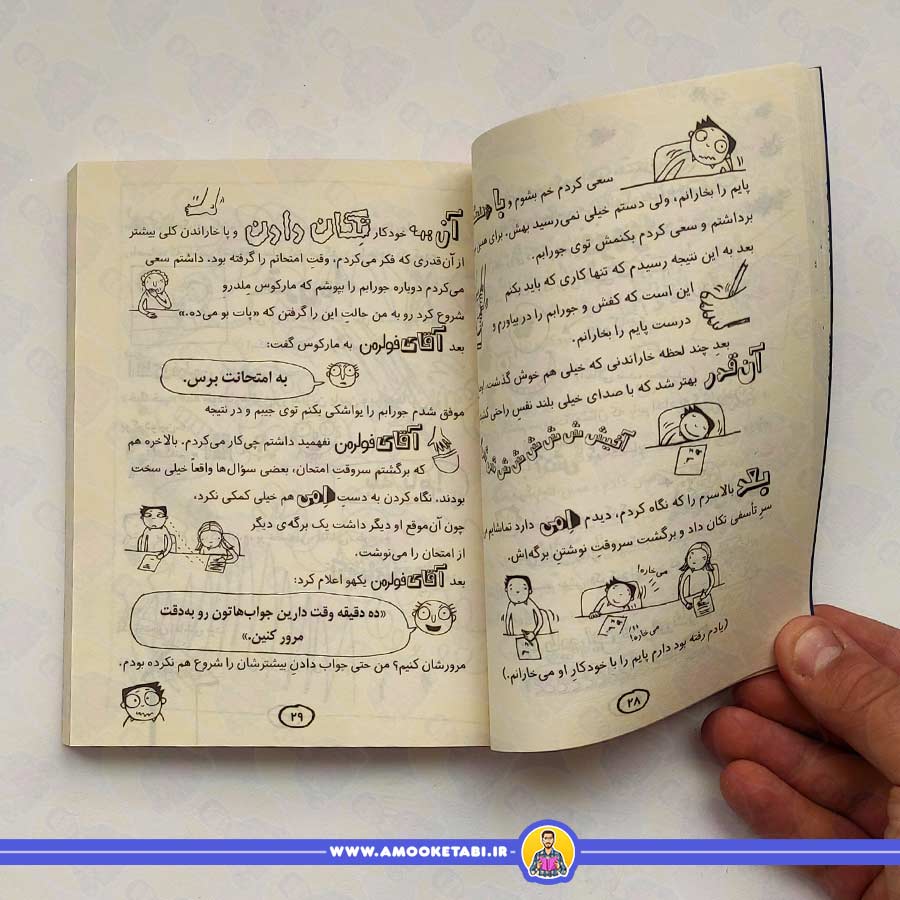 سعی کردم خم بشوم و با
پایم را بخارانم، ولی دستم خیلی نمی‌رسید بهش. برای همین
برداشتم و سعی کردم بکنمش توی جورابم.
بعد به این نتیجه رسیدم که تنها کاری که باید بکنم
این است که کفش و جورابم را در بیاورم و
درست پایم را بخارانم.
بعدِ چند لحظه خاراندنی که خیلی هم خوش گذشت،
آن‌قدر بهتر شد که با صدای خیلی بلند نفسِ راحتی
آخیش ش ش ش ش ش ش
بعد بالاسرم را که نگاه کردم، دیدم اِمی دارد تماشایم
سرِ تأسفی تکان داد و برگشت سروقتِ نوشتنِ برگه‌اش.
می‌خاره!
می‌خاره!
(یادم رفته بود دارم پایم را با خودکارِ او می‌خارانم.)
۲۸
آن همه خودکار تکان دادن و پا خاراندن کلی بیشتر
از آن‌قدری که فکر می‌کردم، وقتِ امتحانم را گرفته بود. داشتم سعی
می‌کردم دوباره جورابم را بپوشم که مارکوس مِلدرو
شروع کرد رو به من حالتِ این را گرفتن که «پات بو می‌ده.»
بعد آقای فولرمن به مارکوس گفت:
به امتحانت برس.
موفق شدم جورابم را یواشکی بکنم توی جیبم و در نتیجه
آقای فولرمن نفهمید داشتم چی‌کار می‌کردم. بالاخره هم
که برگشتم سروقتِ امتحان، بعضی سؤال‌ها واقعاً خیلی سخت
بودند. نگاه کردن به دستِ اِمی هم خیلی کمکی نکرد،
چون آن‌موقع او دیگر داشت یک برگه‌ی دیگر
از امتحان را می‌نوشت.
بعد آقای فولرمن یکهو اعلام کرد:
«ده دقیقه وقت دارین جواب‌هاتون رو به‌دقت
مرور کنین.»
مرورشان کنیم؟ من حتی جواب دادنِ بیشترشان را شروع هم نکرده بودم.
۲۹
WWW.AMOOKETABI.IR